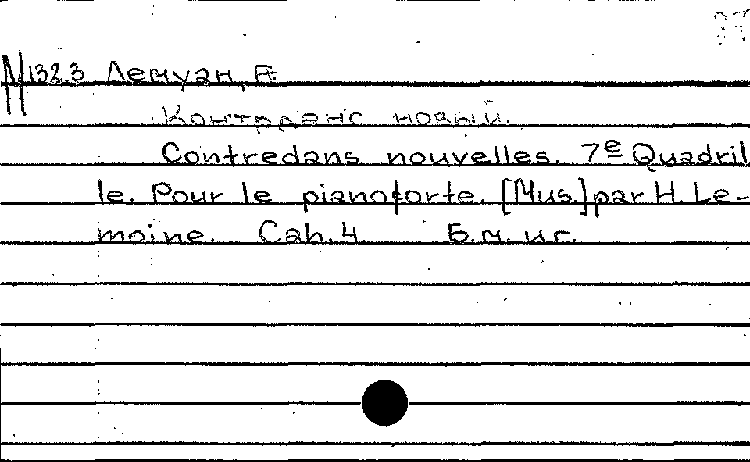 N1323 Лемуан, А.
Контраданс новый.
Contredans nouvelles. 7e Quadril
le. Pour le pianoforte. [Mus.] par H. Le-
moine. Cah. 4 Б. м. и г.